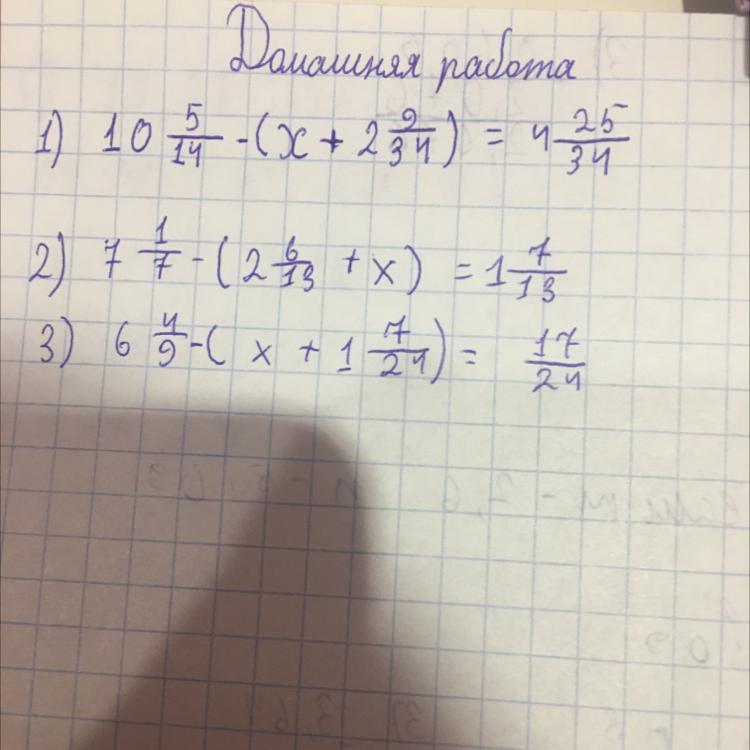 Домашняя работа
1) 10 5/14 - (x + 2 9/34) = 4 25/34
2) 7 1/7 - (2 6/13 + x) = 1 7/13
3) 6 4/9 - (x + 1 7/24) = 17/24